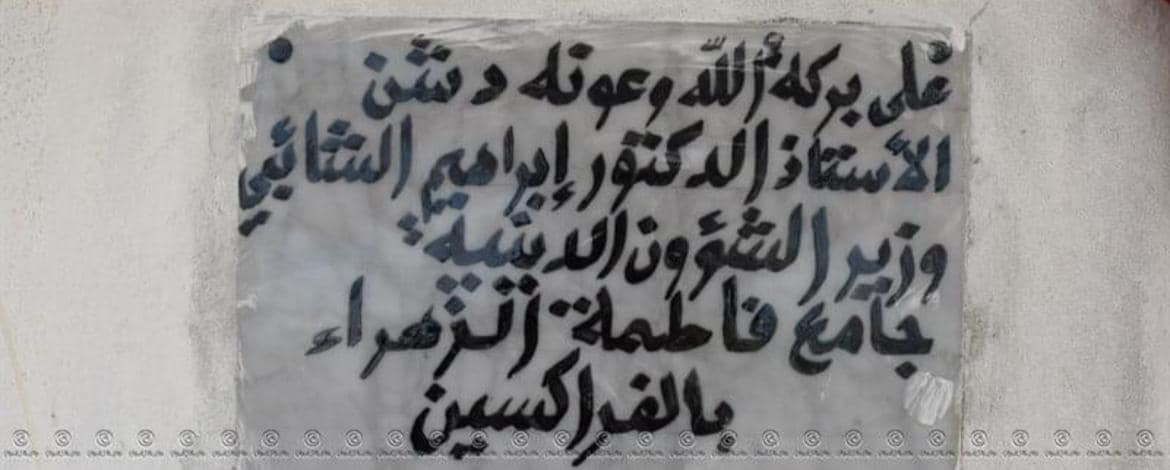 على بركة الله وعونه دشن
الأستاذ الدكتور إبراهيم الشائبي
وزير الشؤون الدينية
جامع فاطمة الزهراء
بالفراكسين